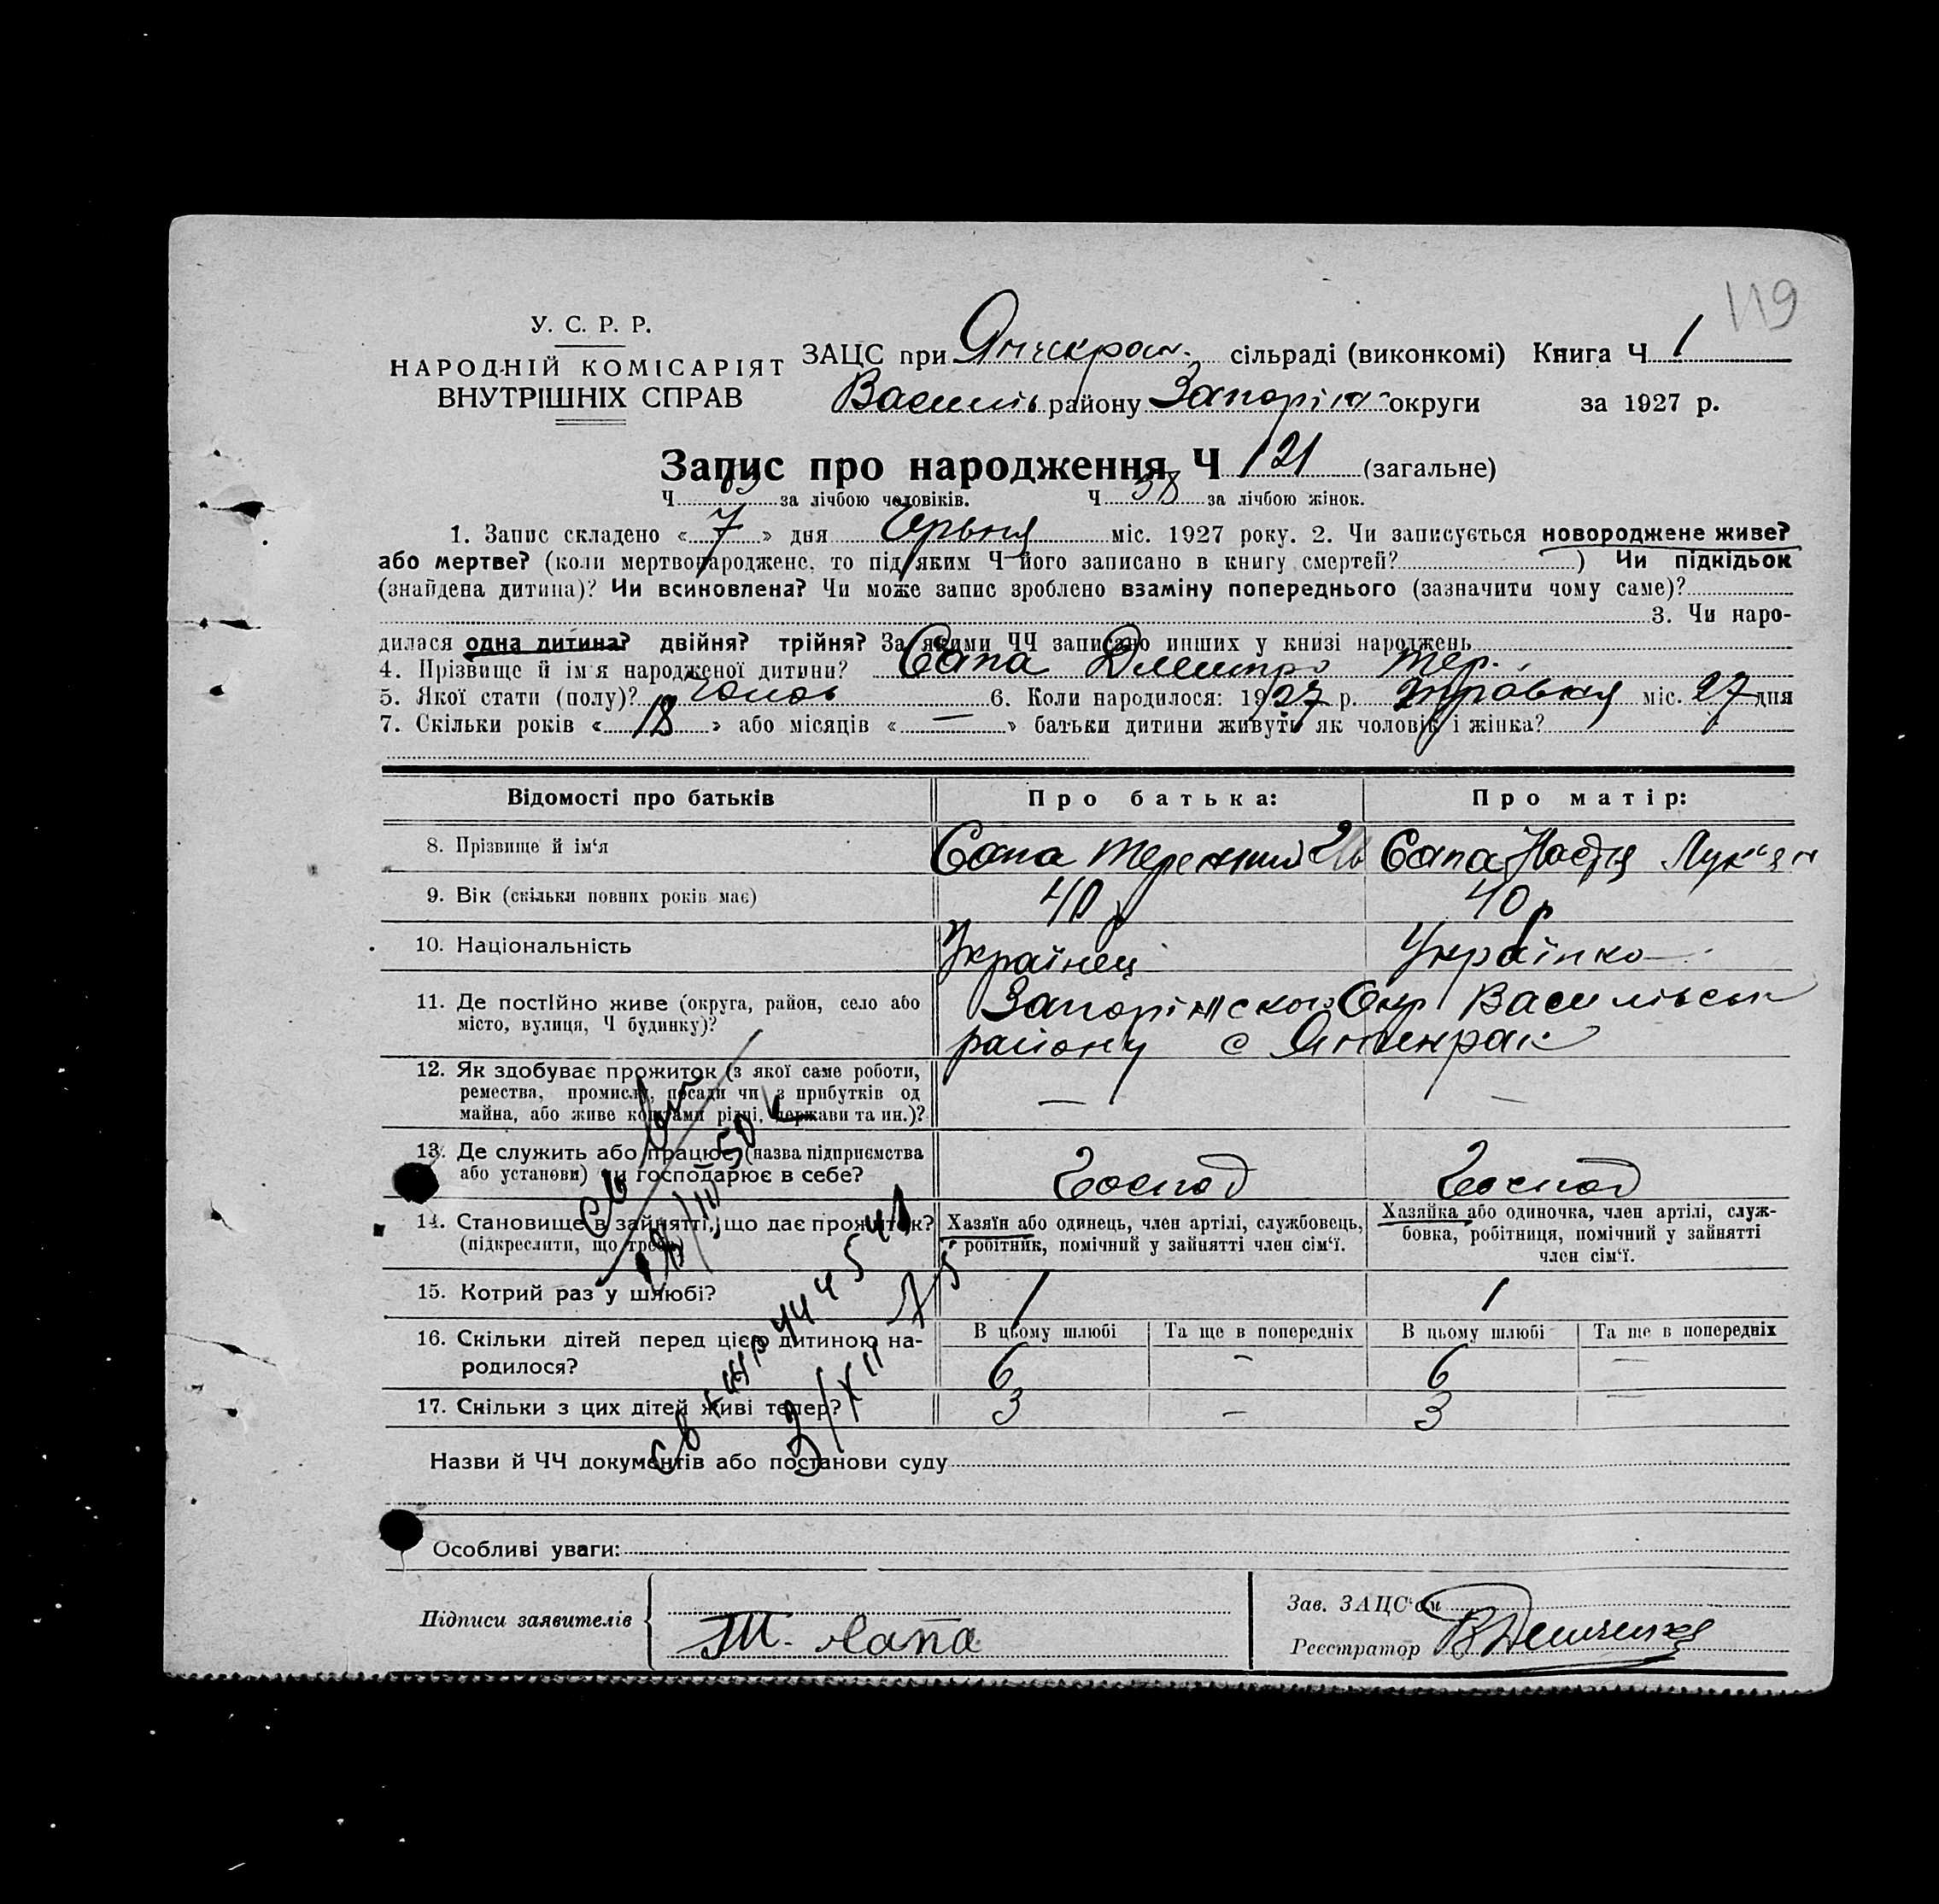 119
У. С. Р. Р.
НАРОДНІЙ КОМІСАРІЯТ
ВНУТРІШНІХ СПРАВ
ЗАЦС при Янчекрак. сільраді (виконкомі) Книга Ч 1
Василів району Запоріж округи за 1927 р.
Запис про народження Ч 121 (загальне)
Ч за лічбою чоловіків. Ч 58 за лічбою жінок.
1. Запис складено « 7 » дня Червня міс. 1927 року. 2. Чи записується новороджене живе?
або мертве? (коли мертвонароджене, то під яким Ч його записано в книгу смертей? ) Чи підкідьок
(знайдена дитина)? Чи всиновлена? Чи може запис зроблено взаміну попереднього (зазначити чому саме)?
3. Чи наро-
дилася одна дитина? двійня? трійня? За якими ЧЧ записано инших у книзі народжень
4. Прізвище й ім'я народженої дитини? Сапа Дмитро Тер.
5. Якої стати (полу)? чолов 6. Коли народилося: 1927 р. Травня міс. 27 дня
7. Скільки років « 18 » або місяців « — » батьки дитини живуть як чоловік і жінка?
Відомості про батьків Про батька: Про матір:
8. Прізвище й ім'я Сапа Терентий Сапа Настя Лук'ян
9. Вік (скільки повних років має) 40 р 40 р
10. Національність Українец Українка
11. Де постійно живе (округа, район, село або Запоріжского Окр Василівськ
місто, вулиця, Ч будинку)? району с Янчекрак
12. Як здобуває прожиток (з якої саме роботи,
ремества, промислу, посади чи з прибутків од — —
майна, або живе коштами рідні, держави та ин.)?
13. Де служить або працює (назва підприємства
або установи) чи господарює в себе? Господ Господ
14. Становище в зайнятті, що дає прожиток? Хазяїн або одинець, член артілі, службовець, Хазяйка або одиночка, член артілі, служ-
(підкреслити, що треба) робітник, помічний у зайнятті член сім'ї. бовка, робітниця, помічний у зайнятті
член сім'ї.
15. Котрий раз у шлюбі? 1 1
16. Скільки дітей перед цією дитиною на- В цьому шлюбі Та ще в попередніх В цьому шлюбі Та ще в попередніх
родилося? 6 — 6 —
17. Скільки з цих дітей живі тепер? 3 — 3 —
Назви й ЧЧ документів або постанови суду
Особливі уваги:
Підписи заявителів Т. Сапа
Зав. ЗАЦС'ом
Реєстратор